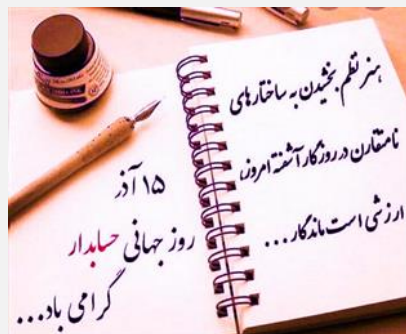 هنر نظم بخشیدن به ساختارهای
نامتقارن در روزگار آشفته امروز،
ارزشی است ماندگار...
۱۵ آذر
روز جهانی حسابدار
گرامی باد...